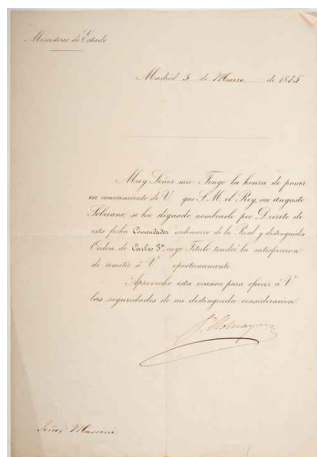 Ministerio de Estado
Madrid 3 de Marzo de 1885
Muy Señor mio: Tengo la honra de poner
en conocimiento de V. que S. M. el Rey, mi augusto
Soberano, se ha dignado nombrarle por Decreto de
esta fecha Comendador ordinario de la Real y distinguida
Orden de Carlos 3º, cuyo Título tendré la satisfaccion
de remitir á V. oportunamente.
Aprovecho esta ocasion para ofrecer á V.
las seguridades de mi distinguida consideracion
Señor